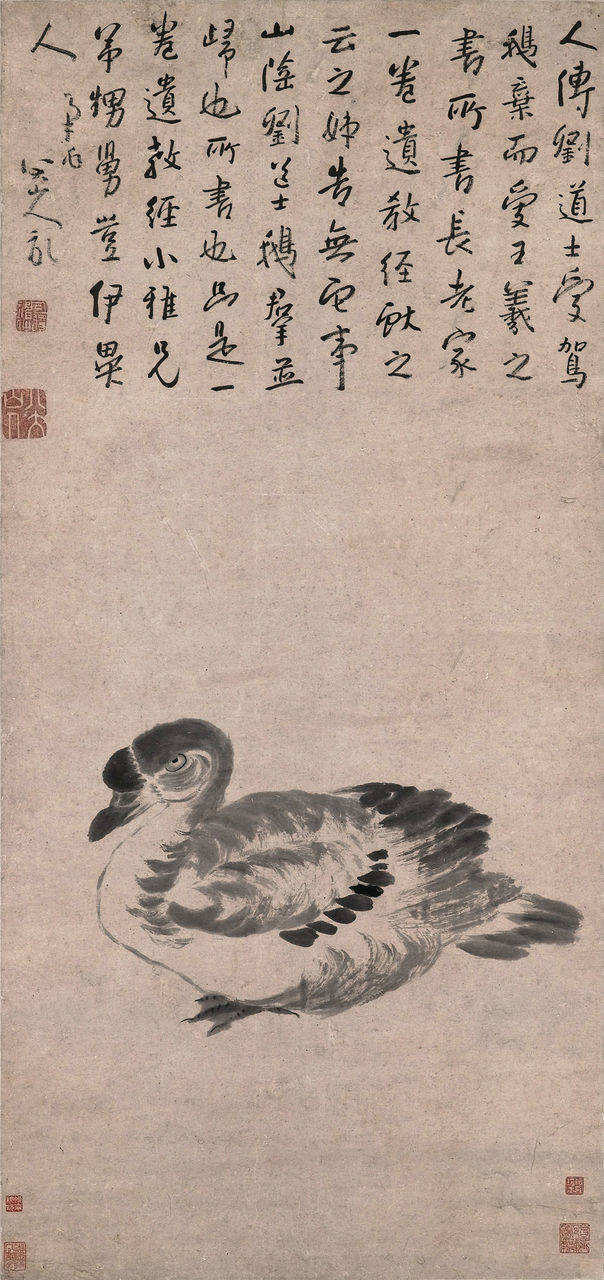 人傳劉道士愛駕
鵝棄而愛王羲之
書所書長老家
一卷遺教經獻之
云之姊告無更事
山陰劉道士鵝羣並
歸也所書也只是一
卷遺教經小雅兄
弟甥舅豈伊異
人
八山人